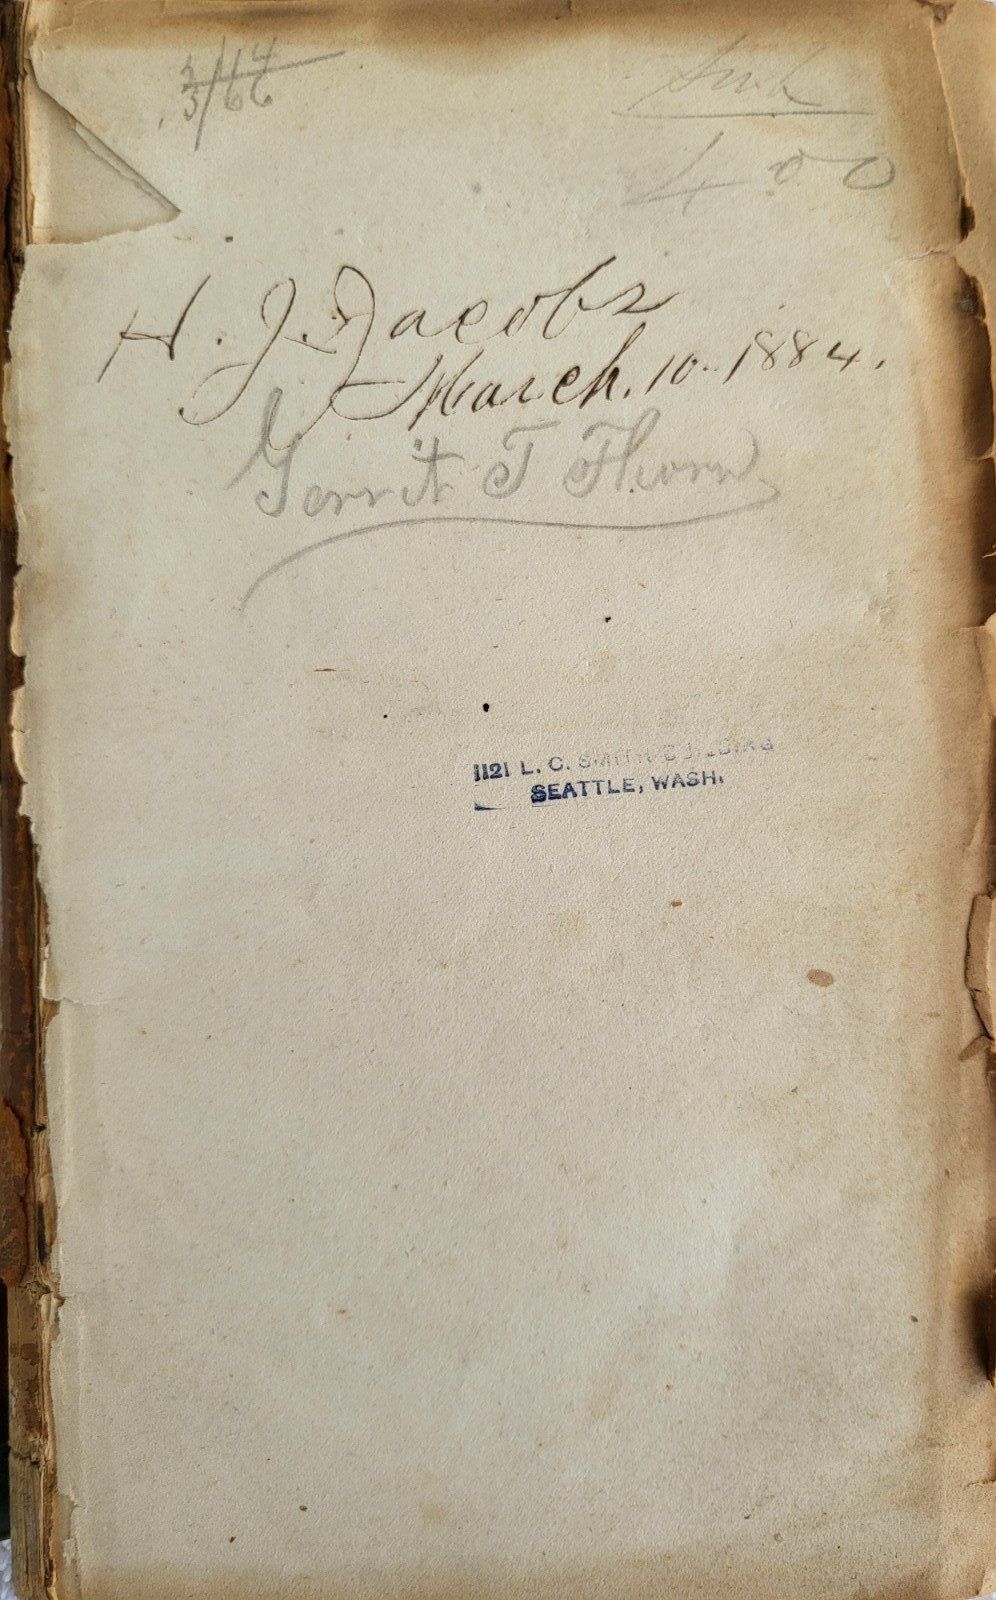 3/66
400
H. J. Jacobs
March. 10. 1884.
Gerrit T Thorn
1121 L. C. SMITH BUILDING
SEATTLE, WASH.